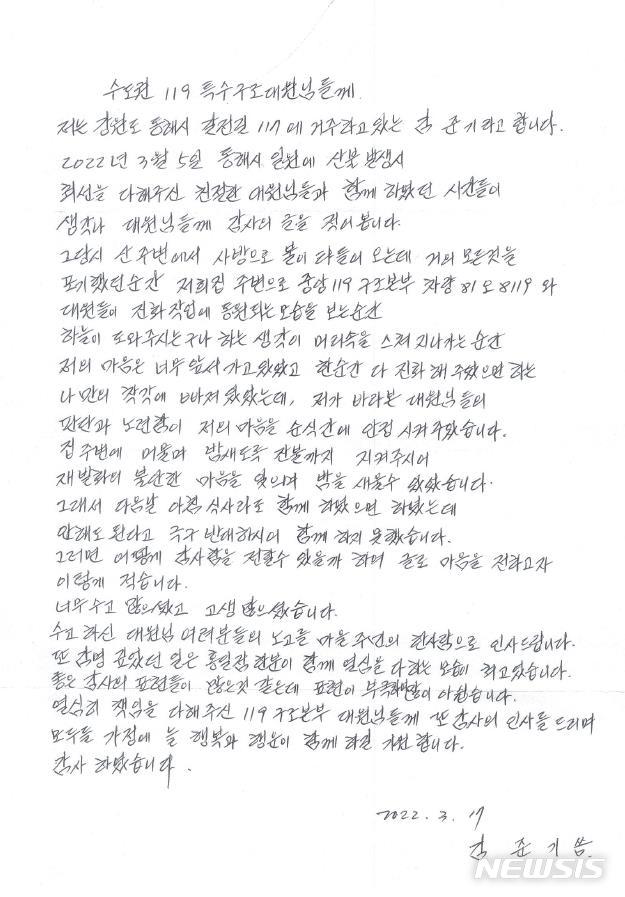 수도권 119 특수구조대원님들께
저는 강원도 동해시 발전길 117에 거주하고있는 김 준기라고 합니다.
2022년 3월 5일 동해시 일원에 산불 발생시
최선을 다해주신 친절한 대원님들과 함께 하였던 시간들이
생각나 대원님들께 감사의 글을 적어봅니다.
그당시 산 주변에서 사방으로 불이 타들어 오는데 거의 모든것을
포기했던순간 저희집 주변으로 중앙119구조본부 차량 81오8119 와
대원들이 진화작업에 동원되는 모습을 보는순간
하늘이 도와주시는구나 하는 생각이 머리속을 스쳐 지나가는 순간
저의 마음은 너무 앞서가고있었고 한순간 다 진화해 주었으면 하는
나만의 착각에 빠져 있었는데, 제가 바라본 대원님들의
판단과 노련함이 저의 마음을 순식간에 안정 시켜주었습니다.
집 주변에 머물며 밤새도록 잔불까지 지켜주시어
재발화의 불안한 마음을 잊으며 밤을 새울수 있었습니다.
그래서 다음날 아침식사라도 함께 하였으면 하였는데
안해도 된다고 극구 반대하시어 함께 하지 못했습니다.
그러면 어떻게 감사함을 전할수 있을까 하며 글로 마음을 전하고자
이렇게 적습니다.
너무수고 많으셨고 고생 많으셨습니다.
수고하신 대원님 여러분들의 노고를 마을주민의 한사람으로 인사드립니다.
또 감명 깊었던 일은 통일장 한분이 함께 열심을 다하는 모습이 최고였습니다.
좋은 감사의 표현들이 많은것 같은데 표현이 부족하여 아쉽습니다.
열심히 책임을 다해주신 119구조본부 대원님들께 또 감사의 인사를 드리며
모두들 가정에 늘 행복과 행운이 함께 하길 기원합니다.
감사 하였습니다.
2022. 3. 17
김 준 기 씀.
NEWSIS